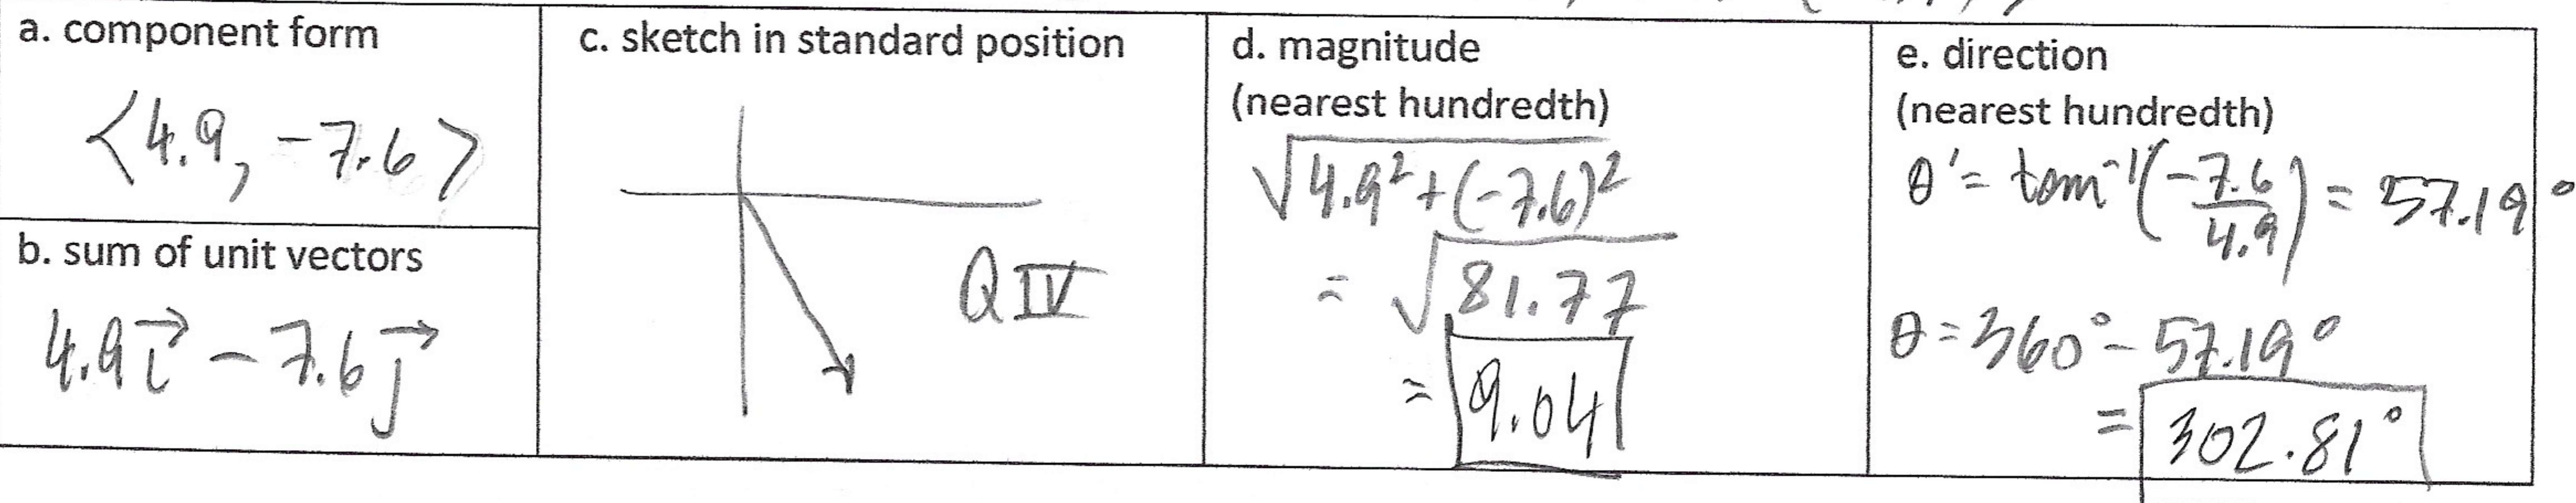 a. component form
<4.9, -7.6>
b. sum of unit vectors
4.9i⃗ - 7.6j⃗
c. sketch in standard position
QIV
d. magnitude
(nearest hundredth)
√4.9²+(-7.6)²
= √81.77
= 9.04
e. direction
(nearest hundredth)
θ' = tan⁻¹(-7.6/4.9) = 57.19°
θ = 360° - 57.19°
= 302.81°